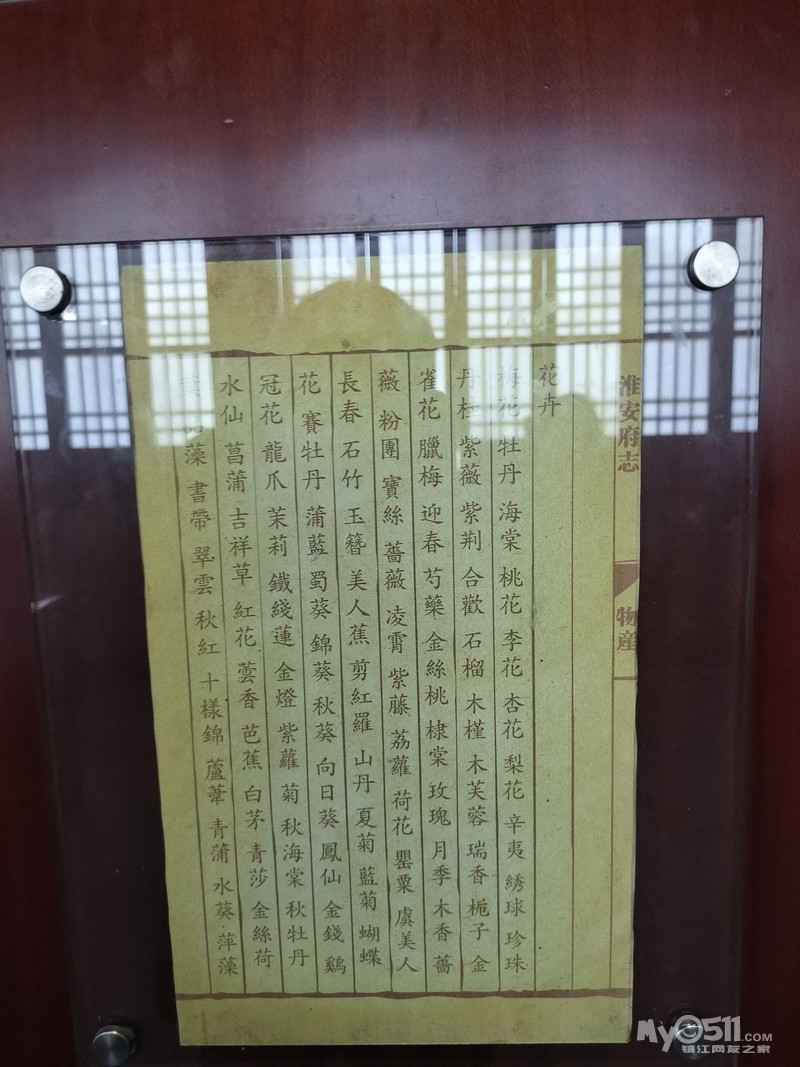 淮安府志
物産
花卉
梅花 牡丹 海棠 桃花 李花 杏花 梨花 辛夷 綉球 珍珠
丹桂 紫薇 紫荆 合歡 石榴 木槿 木芙蓉 瑞香 栀子 金
雀花 臘梅 迎春 芍藥 金絲桃 棣棠 玫瑰 月季 木香 薔
薇 粉團 寶絲 薔薇 凌霄 紫藤 荔蘿 荷花 罌粟 虞美人
長春 石竹 玉簪 美人蕉 剪紅羅 山丹 夏菊 藍菊 蝴蝶
花 賽牡丹 蒲藍 蜀葵 錦葵 秋葵 向日葵 鳳仙 金錢 鷄
冠花 龍爪 茉莉 鐵綫蓮 金燈 紫蘿 菊 秋海棠 秋牡丹
水仙 菖蒲 吉祥草 紅花 蕓香 芭蕉 白茅 青莎 金絲荷
藻 書帶 翠雲 秋紅 十樣錦 蘆葦 青蒲 水葵 萍藻
My0511.COM
镇江网友之家